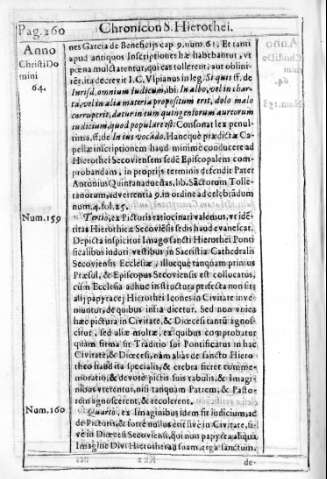 Pag. 260
Chronicon S. Hierothei.
Anno
Christi Do
mini
64.
nes Garcia de Beneficijs cap. 9. num. 61. Et tanti
apud antiquos Inscriptiones hæ habebantur, vt
pœna mulctarentur, qui eas tollerent, aut oblini-
rēt, ita decrevit I. C. Vlpianus in leg. Si quis ff. de
Iurisd. omnium Iudicum, ibi: In albo, vel in char-
ta, vel in alia materia propositum erit, dolo malo
corruperit, datur in eum quingentorum aureorum
iudicium, quod populare est. Consonat lex penul-
tima, ff. de In ius vocado. Hancque prædictæ Ca-
pellæ inscriptionem haud minimè conducere ad
Hierothei Secoviensem sedē Episcopalem com-
probandam, in proprijs terminis defendit Pater
Antonius Quintanadueñas, lib. Sāctorum Tolle-
tanorum, advertentia 9. in ordine ad celebrādum
num. 4. fol. 25.
Num. 159
Tertio, ex Pictoria ratiocinari valemus, vt idē-
titas Hierothica Secoviēsis sedis haud evanescat.
Depicta inspicitur Imago sancti Hierothei Ponti
ficalibus induti vestibus in Sacristia Cathedralis
Secoviensis Ecclesiæ, illucque tanquam primus
Præsul, & Episcopus Secoviensis est collocatus,
cùm Ecclesia adhuc instructura perfecta non sit:
alij papyracej Hierothei Icones in Civitate inve
niuntur, de quibus infra dicetur. Sed non vnica
hæc pictura in Civitate, & Diœcesi tantū agnos-
citur, sed aliæ multæ, ex quibus comprobatur
quàm firma sit Traditio sui Pontificatus in hac
Civitate, & Diœcesi, nàm aliàs de sancto Hiero-
theo haud ita specialis, & crebra fieret comme-
moratio, & devotè pictis suis tabulis, & Imagi-
nibus vterentur, nisi tanquam Patrem, & Pasto-
rem agnoscerent, & recolerent.
Num. 160
Quarto, ex Imaginibus idem fit Iudicium, ac
de Picturis, & fortè nullus est sivè in Civitate, si-
vè in Diœcesi Secoviensi, qui non papyrea aliqua
Imagine Divi Hierothei ad suam, erga sanctum,
de-